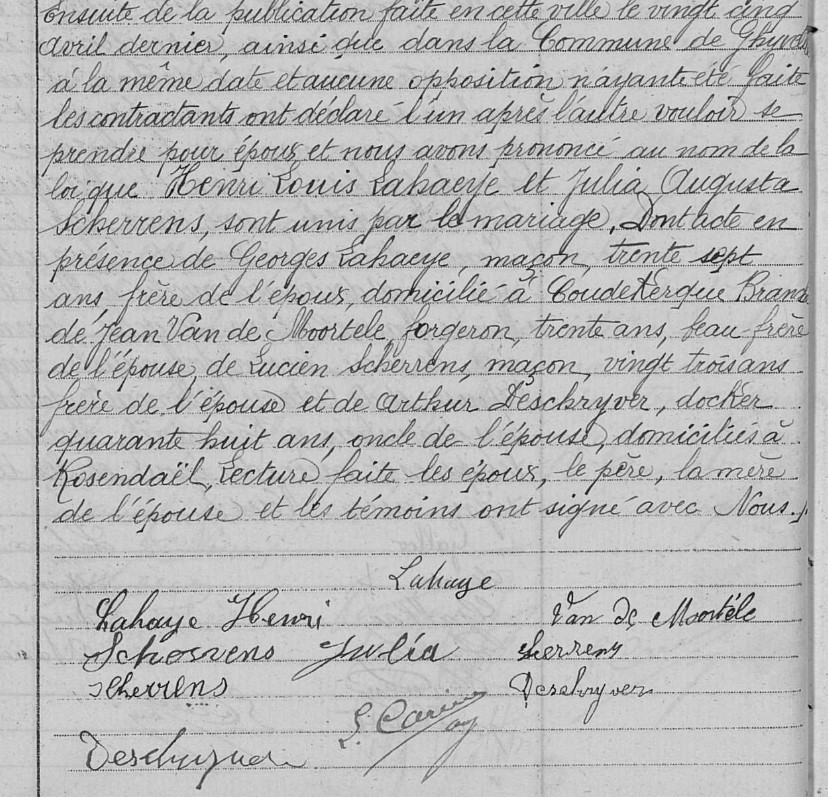 Ensuite de la publication faite en cette ville le vingt cinq
Avril dernier, ainsi que dans la Commune de
à la même date et aucune opposition n'ayante été faite
les contractants ont déclaré l'un après l'autre vouloir se
prendre pour époux, et nous avons prononcé au nom de la
loi que Henri Louis Lahaeye et Julia Augusta
Scherrens, sont unis par le mariage, Dont acte en
présence de Georges Lahaeye, maçon, trente sept
ans, frère de l'époux, domicilié à Coudekerque Branc
de Jean Van de Moortele, forgeron, trente ans, beau-frère
de l'épouse, de Lucien Scherrens, maçon, vingt trois ans
frère de l'épouse et de Arthur Deschryver, docker
quarante huit ans, oncle de l'épouse, domiciliés à
Rosendaël, Lecture faite les époux, le père, la mère
de l'épouse et les témoins ont signé avec Nous./.
Lahaye
Lahaye Henri Van de Moortéle
Scherrens Julia Scherrens
Scherrens Deschryver
Deschryver